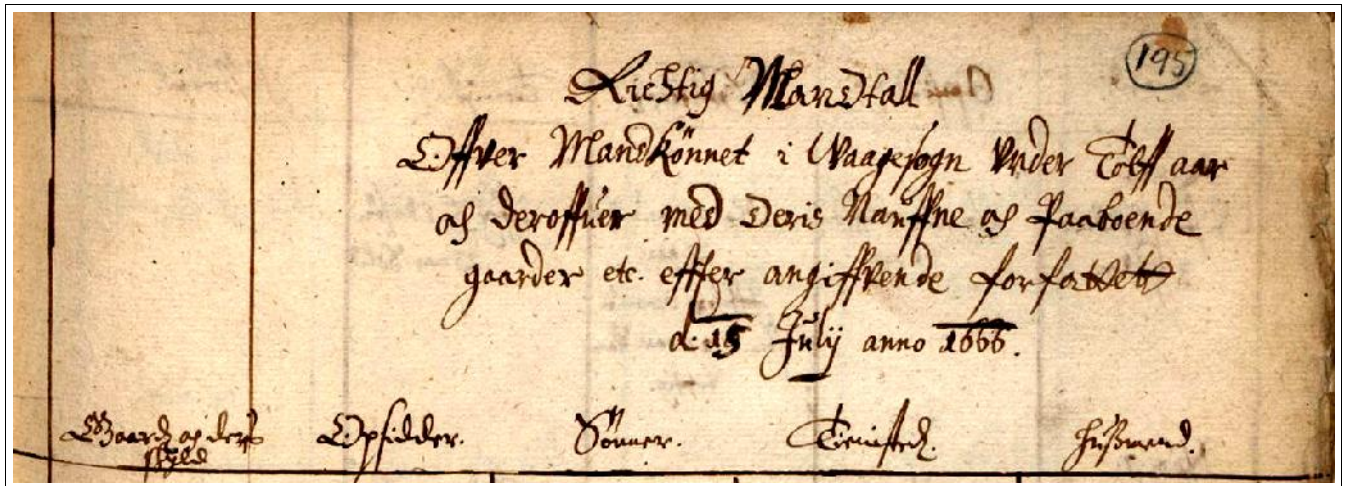 195
Richtig Mandtall
Offver Mandkönnet i Waagesogn Vnder Tolff aar
och deroffuer med Deris Nauffne och Paaboende
gaarder etc. effter angiffvende forfattett
d. 15 Julij anno 1666.
Gaard och ders Opsidder. Sönner. Husmend.
skyld